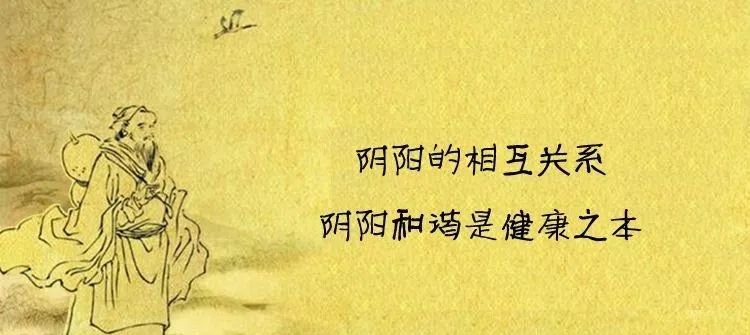 阴阳的相互关系
阴阳和谐是健康之本